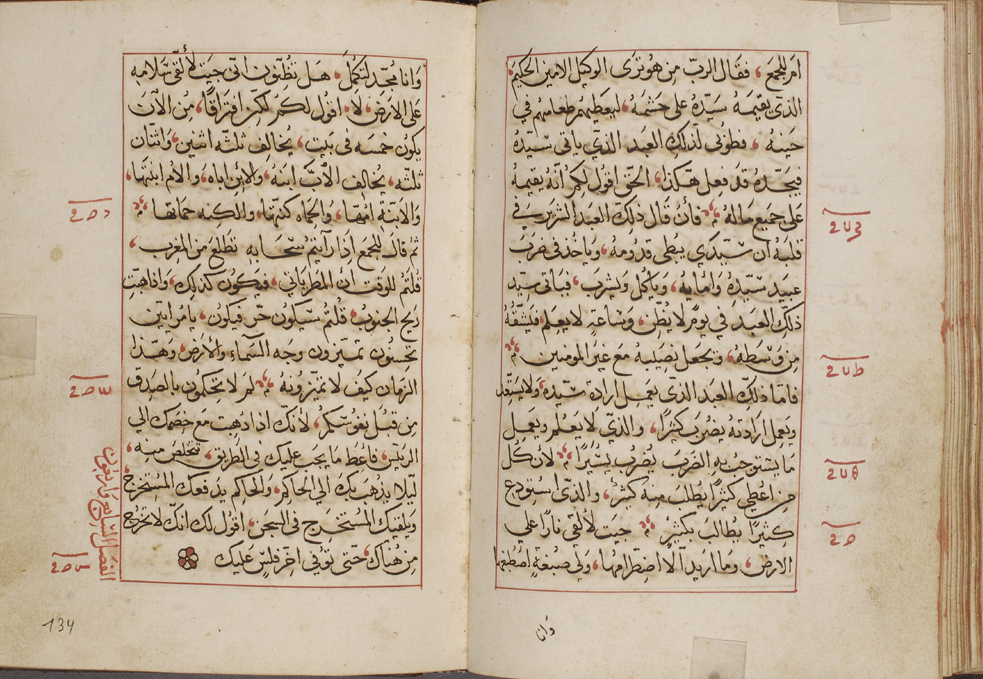 امر للجمع، فقال الرب من هو ترى الوكيل الامين الحكيم،
الذي يقيمه سيده على حشمه، ليعطيهم طعامهم في
حينه، فطوبى لذلك العبد الذي ياتي سيده
فيجده قد فعل هكذا، الحق اقول لكم انه يقيمه
على جميع ماله، فان قال ذلك العبد الشرير في
قلبه ان سيدي يبطي قدومه، وياخذ في ضرب
عبيد سيده وامايه، وياكل ويشرب، فياتي سيد
ذلك العبد في يوم لا يظن، وساعة لا يعلم، فيشقه
من وسطه، ويجعل نصيبه مع غير المومنين
فاما ذلك العبد الذي يعمل ارادة سيده، ولا يستعد
ويعمل ارادته يضرب كثيرًا، والذي لا يعلم ويعمل
ما يستوجب به الضرب يضرب يسيرًا، لان كل
من اعطي كثيرًا يطلب منه كثير، والذي استودع
كثيرًا يطالب بكثير، جيت لالقي نارًا علي
الارض، وما اريد الا اضطرامها، ولي صبغة اصطبغها
وانا
وانا مجد لتكمل، هل تظنون اني جيت لالقي سلامه
على الارض، لا، اقول لكم لكن افتراقًا، من الآن
يكون خمسه في بيت، يخالف ثلثه اثنين، واثنان
ثلثه، يخالف الاب ابنه، والابن اباه، والام ابنتها،
والابنة امها، والحماه كنتها، والكنه حماتها،
ثم قال للجمع اذا رايتم سحابه تطلع من المغرب،
قلتم للوقت ان المطر ياتي، فيكون كذلك، واذا هبت
ريح الجنوب، قلتم سيكون حر فيكون، يا مرايين
تحسنون تميزون وجه السماء والارض، وهذا
الزمان كيف لا تميزونه، لم لا تحكمون بالصدق
من قبل نفوسكم، لانك اذا ذهبت مع خصمك الي
الرييس، فاعط ما يجب عليك في الطريق، تتخلص منه،
ليلا يذهب بك الي الحاكم، والحاكم يدفعك للمستخرج
ويلقيك المستخرج في السجن، اقول لك انك لا تخرج
من هناك، حتى توفي اخر فلس عليك
الفصل السابع واربعون
134